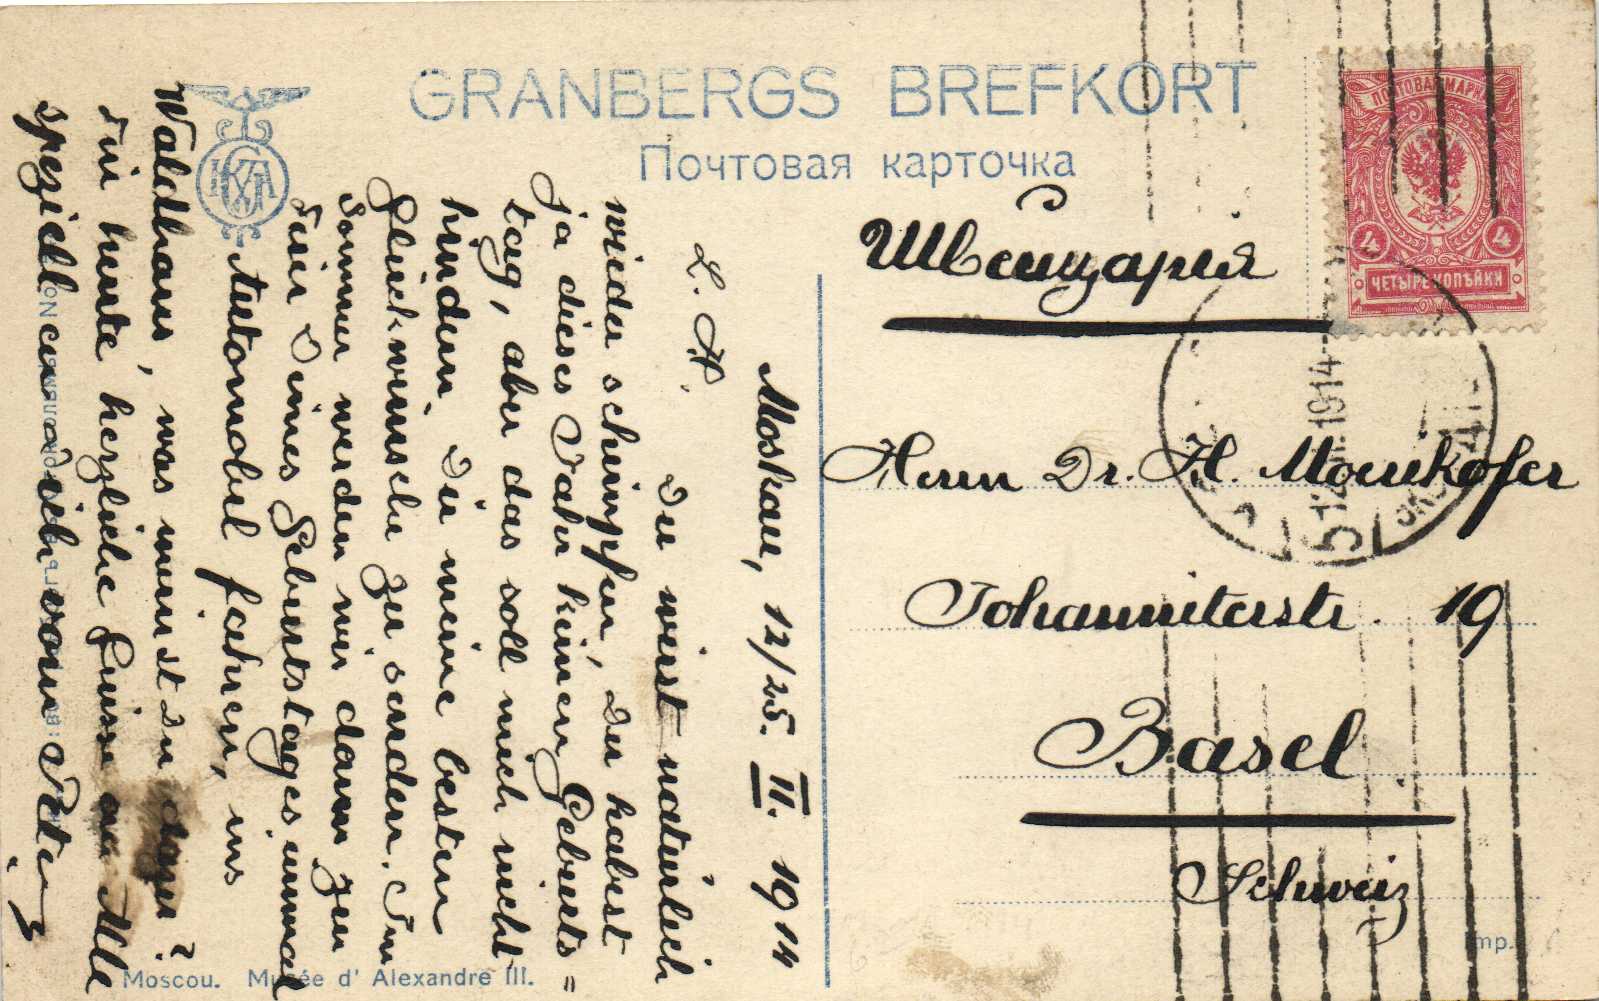 GRANBERGS BREFKORT
Почтовая карточка
ПОЧТОВАЯ МАРКА
4 4
ЧЕТЫРЕ КОПѢЙКИ
Швейцарія
Herrn Dr. H. Monikofer
Johanniterstr. 19
Basel
Schweiz
Moskau, 12/25. II. 1914
L. H.
Du wirst natürlich
wieder schimpfen, Du habest
ja dieses Jahr keinen Geburts=
tag, aber das soll mich nicht
hindern Dir meine besten
Glückwünsche zu senden. Im
Sommer werden wir dann zur
Feier Deines Geburtstages einmal
Automobil fahren, ins
Waldhaus, was meinst Du dazu?
Für heute herzliche Grüsse an Alle
speziell an Dich vom
Moscou. Musée d' Alexandre III.
Imp.
1914